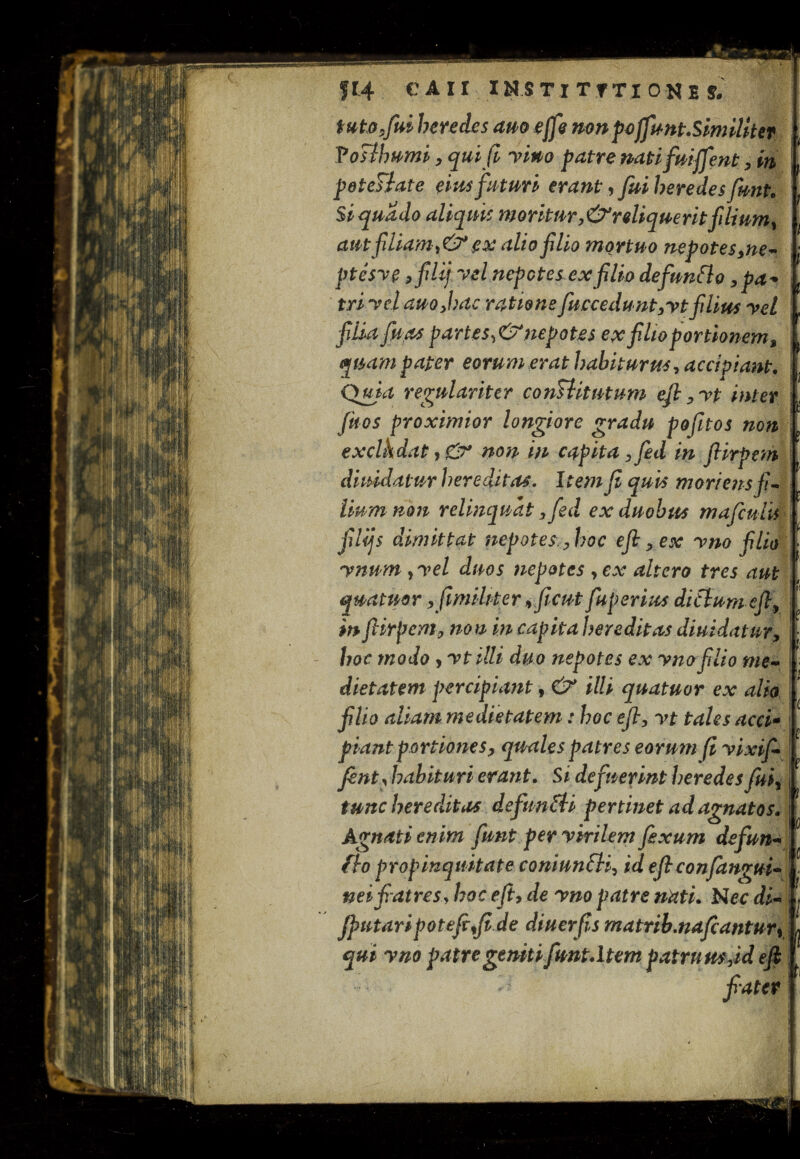 514 CAII INSTITVTIONES.
tuto, sui heredes auo esse non possunt. Similiter
Posthumi, qui si viuo patre nati fuissent, in
potestate eius futuri erant, sui heredes sunt.
Si quãdo aliquis moritur, & reliquerit filium,
aut filiam, & ex alio filio mortuo nepotes, ne-
ptésve, filij vel nepotes ex filio defuncto, pa-
tri vel auo, hac ratione succedunt, vt filius vel
filia suas partes, & nepotes ex filio portionem,
quam pater eorum erat habiturus, accipiant.
Quia regulariter constitutum est, vt inter
suos proximior longiore gradu positos non
excludat, & non in capita, sed in stirpem
diuidatur hereditas. Item si quis moriens fi-
lium non relinquat, sed ex duobus masculis
filijs dimittat nepotes, hoc est, ex vno filio
vnum, vel duos nepotes, ex altero tres aut
quatuor, similiter, sicut superius dictum est,
in stirpem, non in capita hereditas diuidatur,
hoc modo, vt illi duo nepotes ex vno filio me-
dietatem percipiant, & illi quatuor ex alio
filio aliam medietatem: hoc est, vt tales acci-
piant portiones, quales patres eorum si vixis-
sent, habituri erant. Si defuerint heredes sui,
tunc hereditas defuncti pertinet ad agnatos.
Agnati enim sunt per virilem sexum defun-
cto propinquitate coniuncti, id est consangui-
nei fratres, hoc est, de vno patre nati. Nec di-
sputari potest, si de diuersis matrib. nascantur,
qui vno patre geniti sunt. Item patruus, id est
frater